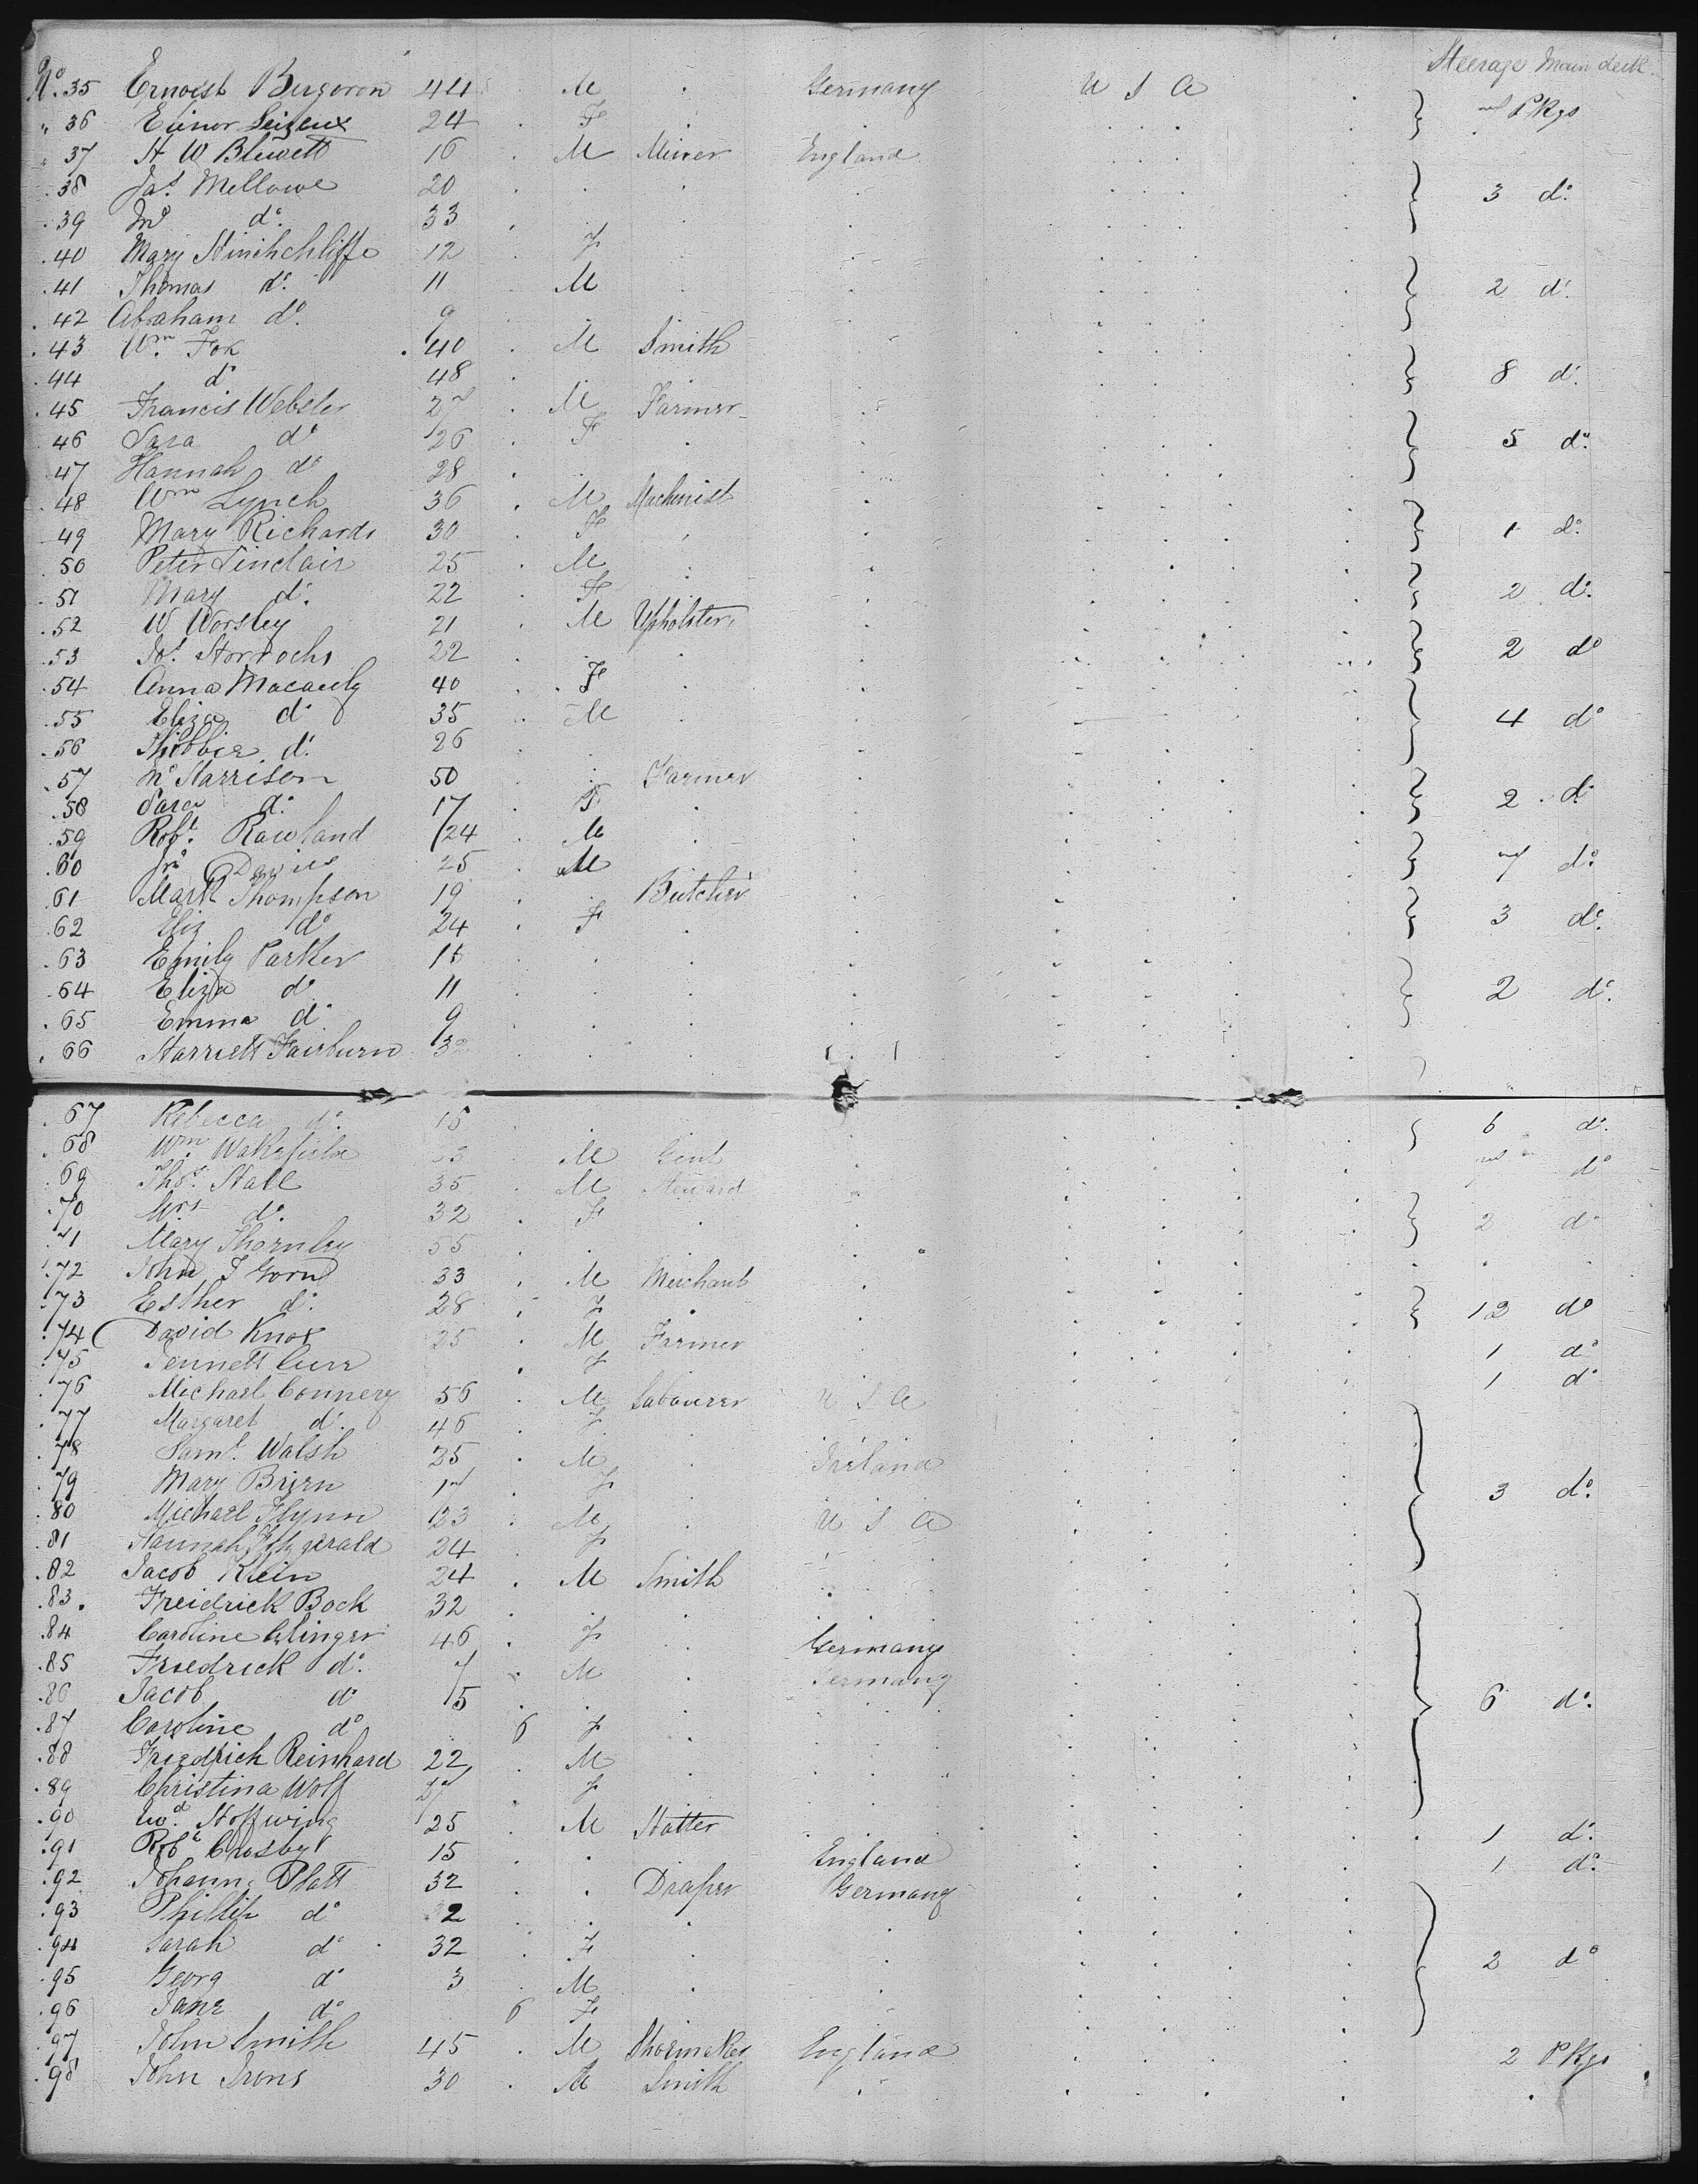 Steerage Main deck
No. 35 Ernoest Bergeron 44 M Germany U S A
" 36 Elinor 24 F Pkgs
" 37 H W Blewett 16 M Miner England
38 Jas. Mellowe 20 3 do.
39 do. 33
40 Mary Hinchchliffe 12 F
41 Thomas do. 11 M 2 do.
42 Abraham do. 9
43 Wm. Fox 40 M Smith
44 do 48 8 do.
45 Francis Webster 27 M Farmer
46 Sara do 26 F 5 do.
47 Hannah do 28
48 Wm Lynch 36 M Machinist
49 Mary Richards 30 F 1 do.
50 Peter Sinclair 25 M
51 Mary do. 22 F 2 do.
52 W Worsley 21 M Upholster
53 22 2 do
54 Anna Macauly 40 F
55 Eliza do 35 M 4 do
56 do. 26
57 Harrison 50 Farmer
58 Sara do. 17 F 2 do
59 Robt. Rawland 24 M
60 Jno Davies 25 M 7 do.
61 Mark Thompson 19 Butcher
62 Eliz do 24 F 3 do.
63 Emily Parker
64 Eliza do 11 2 do.
65 Emma do 9
66 Harriett Fairburn 32
67 Rebecca do. 15 6 do.
68 Wm. Wakefield M Gent do
69 Thos. Hall 35 M
70 Mrs do. 32 F 2 do
71 Mary Thornley 55
72 John J Gorn 33 M Merchant
73 Esther do. 28 F 12 do
74 David Knox 25 M Farmer 1 do
75 Jennett Curr F 1 do
76 Michael Connery 56 M Labourer U S A
77 Margaret do. 46 F
78 Saml. Walsh 25 M Ireland
79 Mary Brien 17 F 3 do.
80 Michael Flynn 23 M U S A
81 Hannah Fitzgerald 24 F
82 Jacob Klein 24 M Smith
83 Freidrick Bock 32
84 Caroline Clinger 46 F Germany
85 Friedrick do. 7 M Germany
86 Jacob do 5 6 do.
87 Caroline do 6 F
88 Friedrich Reinhard 22 M
89 Christina Wolf 27 F
90 Hoffwing 25 M Hatter 1 do.
91 Robt Crosby 15 England 1 do.
92 Johann Platt 32 Draper Germany
93 Phillip do
94 Sarah do 32 F 2 do
95 Georg do 3 M
96 Jane do 6 F
97 John Smith 45 M Shoemaker England 2 Pkgs
98 John Irons 30 M Smith